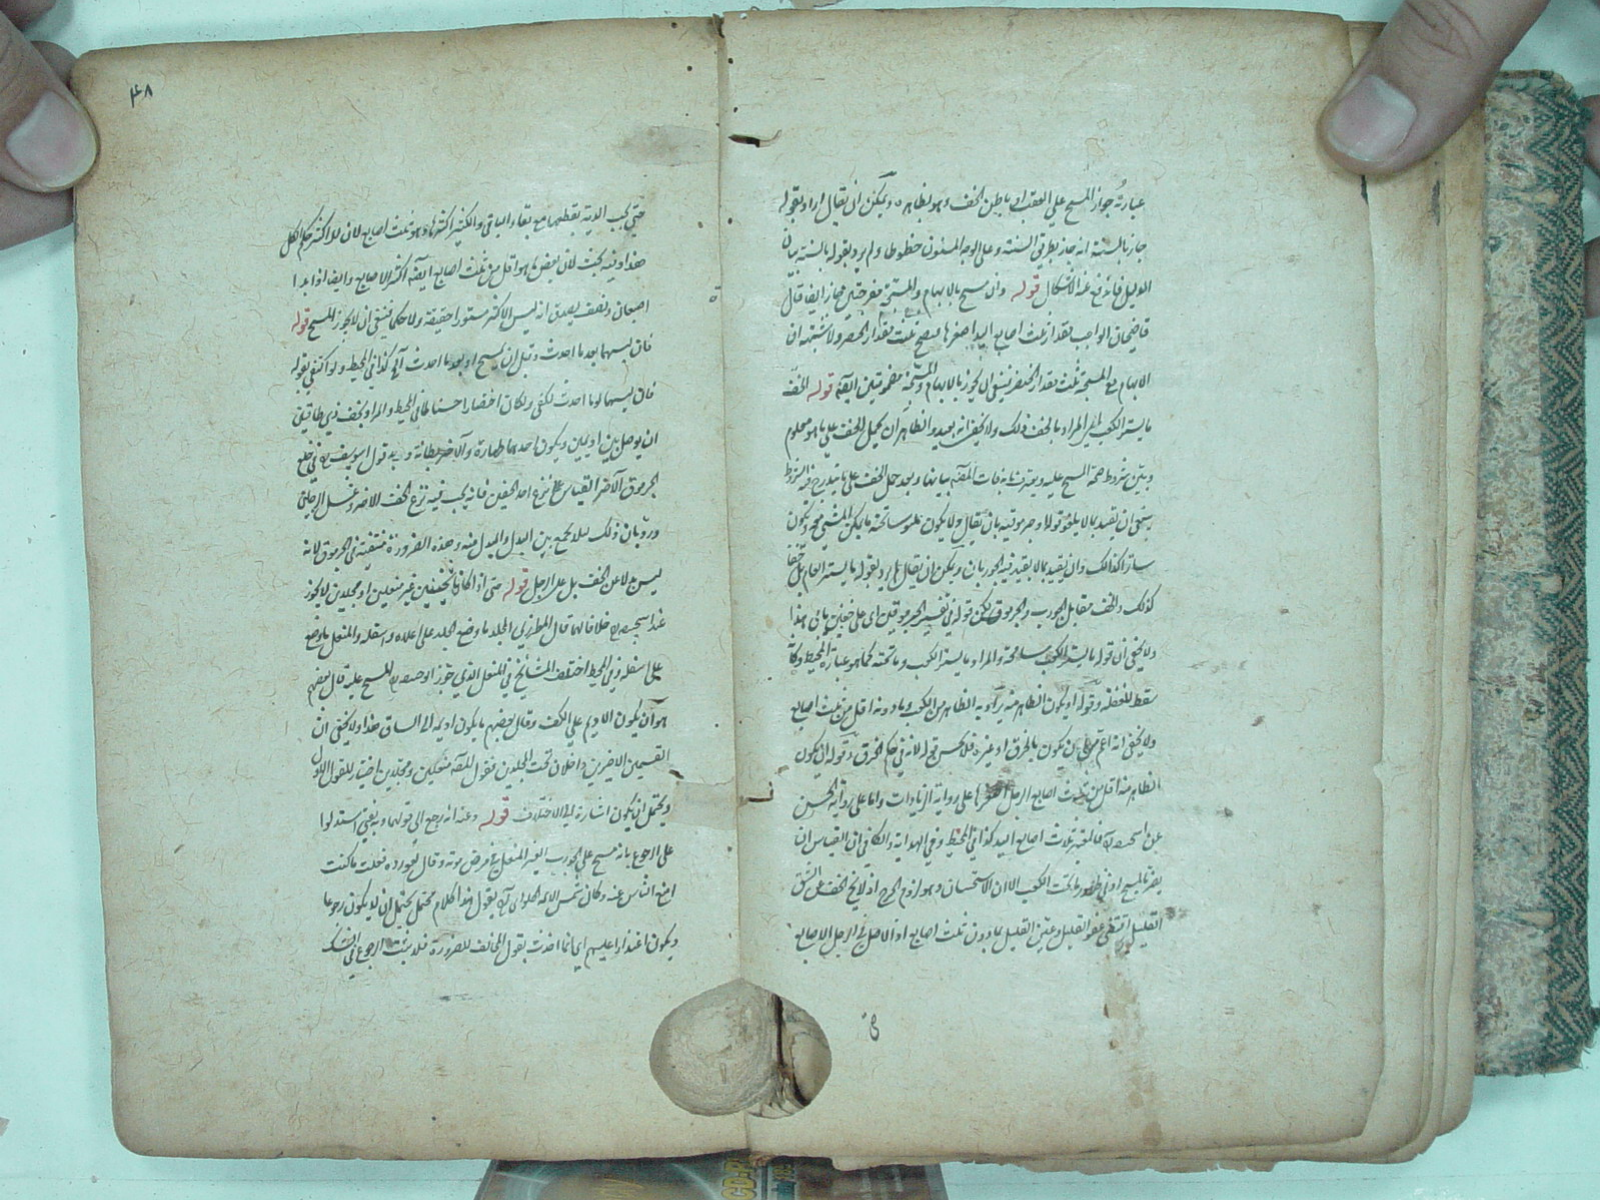 عبارته جواز المسح على العقب او باطن الخف وهو بظاهره ويمكن ان يقال اراد بقوله
جاز بالسنة انه جاز بطريق السنة وعلى الوجه المسنون خطوطا ولم يرد بقوله بالسنة بيان
الدليل فاندفع عنه الاشكال قوله وان مسح بالابهام والمسبحة منفرجتين جاز ايضا قال
قاضيخان الواجب مقدار ثلث اصابع اليد اصغرها فيصح ثلث مقدار الخنصر ولا شبهة ان
الابهام مع المسبحة ثلث مقدار الخنصر فينبغي ان يجوز بالابهام والمسبحة مضمومتين ايضا قوله الخف
ما يستر الكعب المراد بالخف ذلك ولا يخفى انه بعيد والظاهر ان يحمل الخف على ما هو معلوم
ويبين شروط صحة المسح عليه وبعد حمل الخف على
ينبغي ان يقيد بما لا يلغو قوله او جرموقيه بان يقال ولا يكون ملبوسا تحته ما يمكن المشي معه ويكون
ساترا كذلك وان يقيد بما لا يقيد فيه الجوربان ويمكن ان يقال لم يرد بقوله ما يستر العام بل خفا
كذلك والخف مقابل الجورب والجرموق لكن قوله في تفسير الجرموقين اى على خفين يابى هذا
ولا يخفى ان قوله ما يستر الكعب مسامحة والمراد ما يستر الكعب وما تحته كما هو عبارة المحيط وكانه
سقط للغفلة وقوله او يكون الظاهر منه يراد به الظاهر من الكعب وما دونه اقل من ثلث اصابع
ولا يخفى انه اعم من ان يكون بالخرق او غيره قوله لانه في حكم الخرق وقوله ان يكون
الظاهر منه اقل من ثلث اصابع الرجل اصغرها على رواية الزيادات واما على رواية الحسن
عن ابى حنيفة فالمعتبر ثلاث اصابع اليد كذا في المحيط وفي الهداية والكافي ان القياس ان
تحت الكعب الا ان الاستحسان وهو لزوم الحرج اذ لا يخ الخف عن الشق
القليل اقتضى عفو القليل وعين القليل بما دون ثلث اصابع اذ الاصل في الرجل الاصابع
٤٨
حتى يجب الدية بقطعها مع بقاء الباقي والكثير اكثرها وهو ثلث اصابع لان للاكثر حكم الكل
هذا وفيه بحث لان بعض ما هو اقل من ثلث اصابع ايضا اكثر الاصابع وايضا اذا بدا
اصبعان ونصف يصدق انه ليس الاكثر مستورا حقيقة ولا حكما فينبغي ان لا يجوز المسح قوله
فان لبسهما بعد ما احدث وقبل ان يمسح او بعد ما احدث آه كذا في المحيط ولو اكتفى بقوله
فان لبسهما بعد ما احدث لكفى ولكان اختصارا حسنا لما في المحيط والمراد بخف ذي طاقين
ان يوصل بين اديمين ويكون احدهما ظهارة والآخر بطانة وقول ابو يوسف في خلع
الجرموق الآخر القياس على نزع احد الخفين فانه يجب فيه نزع الخف الآخر وغسل الرجلين
ورد بان ذلك لئلا يجمع بين البدل والمبدل منه وهذه الضرورة منتفية في الجرموق لانه
ليس بدلا عن الخف بل عن الرجل قوله حتى اذا كانا ثخينين غير منعلين او مجلدين لا يجوز
عند ابي حنيفة خلافا لهما قال المطرزي المجلد ما وضع الجلد على اعلاه واسفله والمنعل ما وضع
على اسفله وفي المحيط اختلف المشايخ في المنعل الذي جوز ابو حنيفة المسح عليه قال بعضهم
هو ان يكون الاديم على الكف وقال بعضهم ما يكون اديمه الى الساق هذا ولا يخفى ان
القسمين الاخيرين داخلان تحت المجلدين فقول المصنف منعلين ومجلدين اختيار للقول الاول
ويحتمل ان يكون اشارة الى الاختلاف قوله وعنه انه رجع الى قولهما وبه يفتى استدلوا
على الرجوع بانه مسح على الجورب الغير المنعل في مرض موته وقال لعوده فعلت ما كنت
امنع الناس عنه وكان شمس الائمة الحلواني يقول هذا كلام محتمل يحتمل ان لا يكون رجوعا
ويكون اعتذارا اليهم اي انما اخذت بقول المخالف للضرورة فلا يثبت الرجوع في الشك